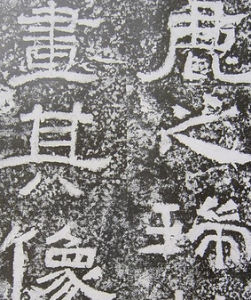 鹿之瑞
畫其像